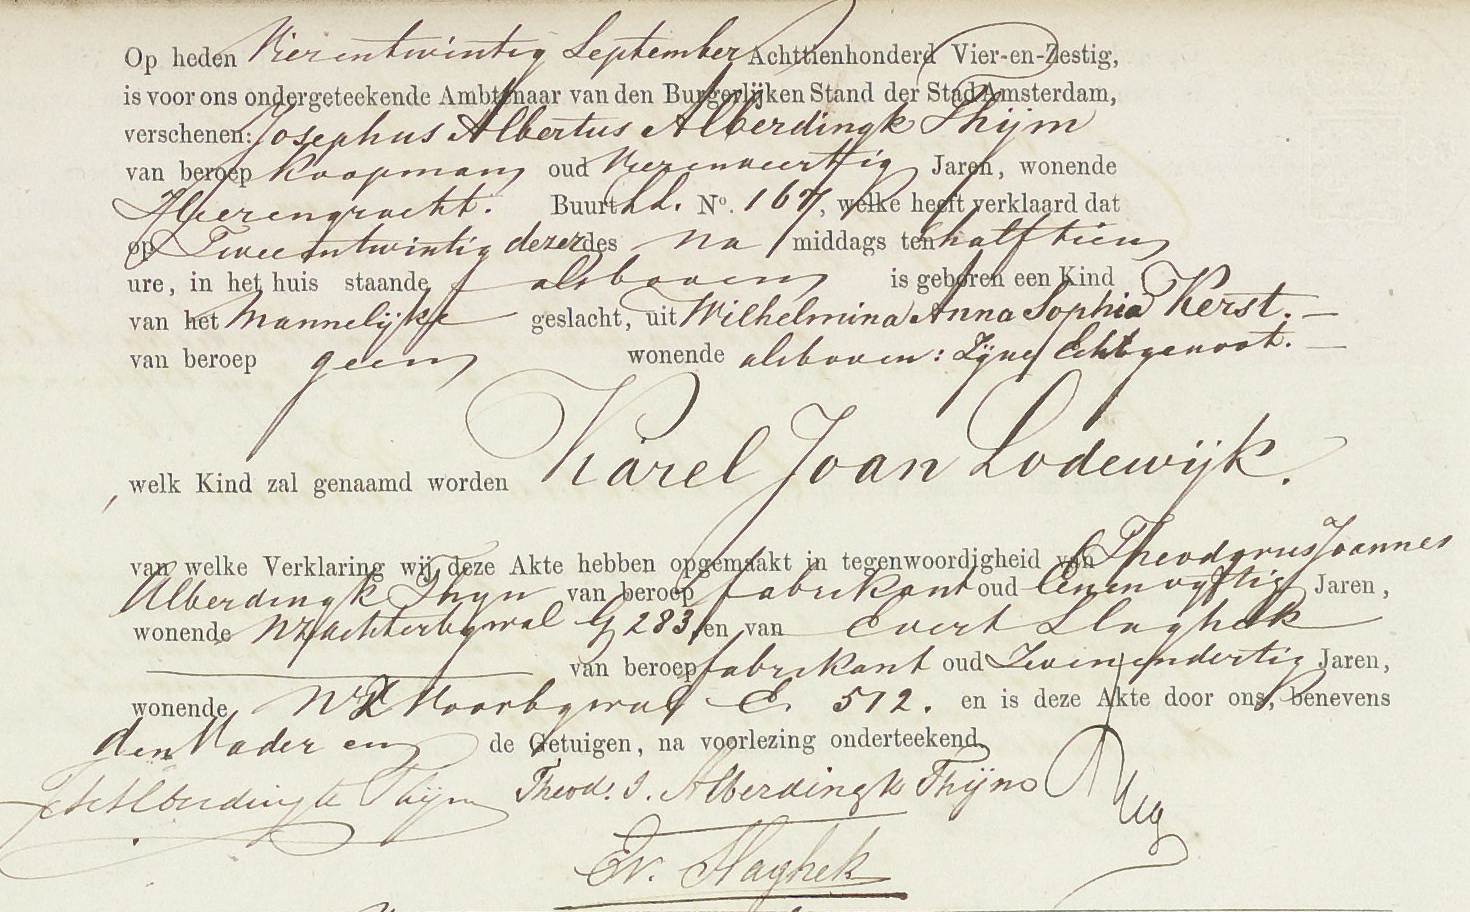 Op heden Vierentwintig September Achttienhonderd Vier-en-Zestig,
is voor ons ondergeteekende Ambtenaar van den Burgerlijken Stand der Stad Amsterdam,
verschenen: Josephus Albertus Alberdingk Thijm
van beroep Koopman oud Vierenveertig Jaren, wonende
Heerengracht. Buurt LL. No. 167, welke heeft verklaard dat
op Tweeentwintig dezer des na middags ten half tien
ure, in het huis staande alsboven is geboren een Kind
van het Mannelijke geslacht, uit Wilhelmina Anna Sophia Kerst. —
van beroep geen wonende alsboven: Zijne Echtgenoot. —
welk Kind zal genaamd worden Karel Joan Lodewijk.
van welke Verklaring wij deze Akte hebben opgemaakt in tegenwoordigheid van Theodorus Joannes
Alberdingk Thijm van beroep fabrikant oud Eenenvyftig Jaren,
wonende NZ Achterbgwal G 283 en van Evert Slaghek
van beroep fabrikant oud Tweeendertig Jaren,
wonende NZ Voorbgwal E. 512. en is deze Akte door ons, benevens
den Vader en de Getuigen, na voorlezing onderteekend
JAAlberdingk Thijm Theod. J. Alberdingk Thijm
Ev. Slaghek